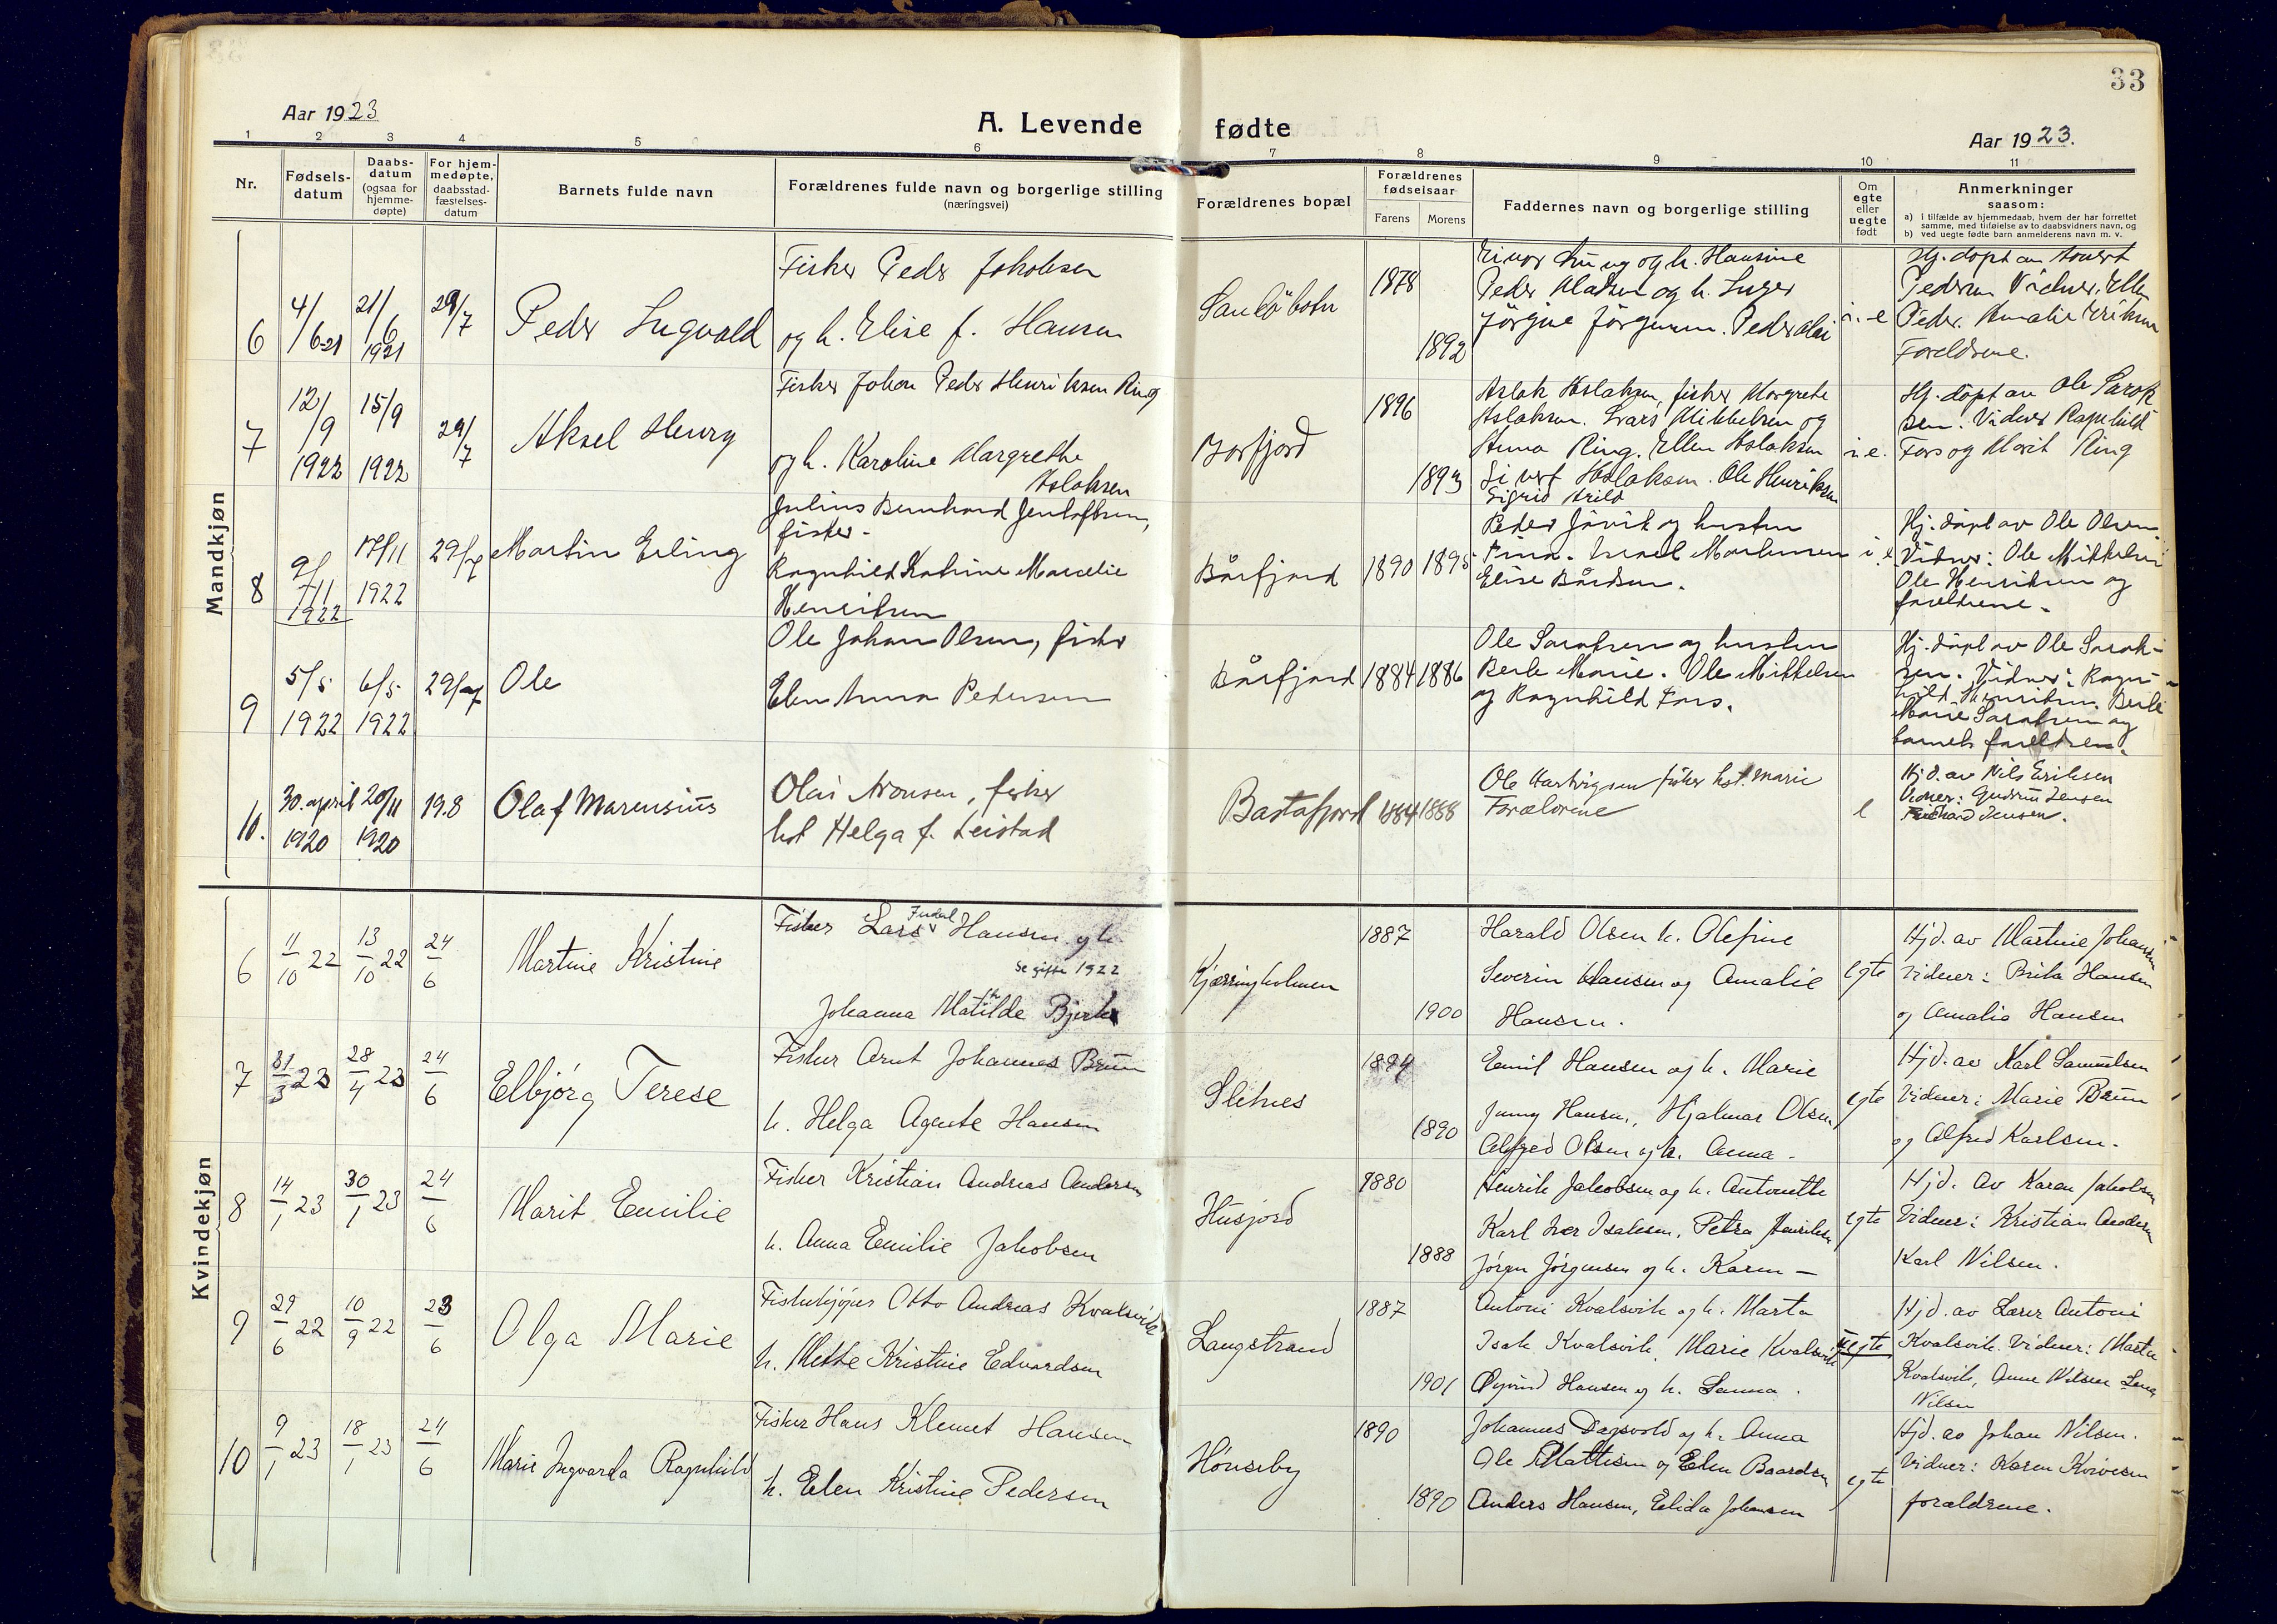 33
Aar 1923
A. Levende fødte
Aar 1923.
1 2 3 4 5 6 7 8 9 10 11
Nr.
Fødsels-datum
Daabs-datum (ogsaa for hjemme-døpte)
For hjem-medøpte, daabsstad-fæstelses-datum
Barnets fulde navn
Forældrenes fulde navn og borgerlige stilling (næringsvei)
Forældrenes bopæl
Forældrenes fødselsaar
Farens Morens
Faddernes navn og borgerlige stilling
Om egte eller uegte født
Anmerkninger saasom:
a) i tilfælde av hjemmedaab, hvem der har forrettet samme, med tilføielse av to daabsvidners navn, og
b) ved uegte fødte barn anmelderens navn m. v.
Mandkjøn
6 4/6-21 21/6 1921 29/7 Peder Ingvald
Fisker Peder Jakobsen
og h. Elise f. Hansen
1878
1892
og h. Hansine
Peder Madsen og h. Inger
i. e
Hj. døpt av
Foreldrene.
7 12/9 1922 15/9 1922 29/7 Aksel Henry
Fisker Johan Peder Henriksen Ring
og h. Karoline Margrethe
Aslaksen
Borfjord
1896
1893
Aslak Aslaksen, fisker Margrete
Aslaksen. Lars Mikkelsen og
Anna Ring. Ellen Aslaksen
Sivert Aslaksen. Ole Henriksen
Sigrid Arild
i e.
Hj. døpt av Ole Sarak
sen. Vidner Ragnhild
Fors og Marit Ring
8 9/11 1922 17/11 1922 29/7 Martin Erling
Julius Bernhard Jentoftsen,
fisker.
Ragnhild Katrine Marcelie
Henriksen
Bårfjord 1890 1895
Peder Jövik og hustru
Trina. Israel Mortensen
Elise Bårdsen.
i e
Hj. døpt av Ole Olsen.
Vidner: Ole Mikkelsen
Ole Henriksen og
foreldrene.
9 5/5 1922 6/5 1922 29/7 Ole
Ole Johan Olsen, fisker
Elen Anna Pedersen
Bårfjord 1884 1886
Ole Saraksen og hustru
Berle Marie. Ole Mikkelsen
og Ragnhild Fors.
Hj. døpt av Ole Sarak-
sen. Vidner: Ragn-
hild Henriksen. Berle
Marie Saraksen og
barnets foreldre.
10. 30. april 1920 20/11 1920 19.8 Olaf Marensius
Olai Aronsen, fisker
hst Helga f. Leistad
Bastafjord 1884 1888
Ole Hartvigsen fisker hst. Marie
Forældrene
e
Hj d. av Nils Eriksen
Vidner: Gudrun Jensen
Richard Jensen.
Kvindekjøn
6 11/10 22 13/10 22 24/6 Martine Kristine
Fisker Lars Hansen og h.
se gifte 1922
Johanna Mathilde Bjerk
Kjærringholmen
1887
1900
Harald Olsen h. Olefine
Severin Hansen og Amalie
Hansen.
egte
Hjd. av Martine Johansen
Vidner: Brita Hansen
og Amalia Hansen
7 31/3 23 28/4 23 24/6 Elbjørg Terese
Fisker Arnt Johannes Brun
h. Helga Agnete Hansen
Sletnes
1894
1890
Emil Hansen og h. Marie
Jenny Hansen, Hjalmar Olsen
Alfred Olsen og h. Anna -
egte
Hjd. av Karl Samuelsen
Vidner: Marie Brun
og Alfred Karlsen.
8 14/1 23 30/1 23 24/6 Marit Emilie
Fisker Kristian Andreas Andersen
h. Anna Emilie Jakobsen
Husjord
1880
1888
Henrik Jakobsen og h. Antonette
Karl Iver Isaksen, Petra Henriksen
Jørgen Jørgensen og h. Karen -
egte
Hjd. av Karen Jakobsen
Vidner: Kristian Andersen
Karl Nilsen.
9 29/6 22 10/9 22 23/6 Olga Marie
Fiskekjøper Otto Andreas Kvalsvik
h. Mette Kristine Edvardsen
Langstrand
1887
1901
Antoni Kvalsvik og h. Marta
Isak Kvalsvik, Marie Kvalsvik
Øyvind Hansen og h. Sanna.
uegte
Hjd. av Lærer Antoni
Kvalsvik. Vidner: Marta
Kvalsvik, Anne Nilsen Lena
Nilsen
10 9/1 23 18/1 23 24/6 Marie Ingvarda Ragnhild
Fisker Hans Klemet Hansen
h. Elen Kristine Pedersen
Hønseby
1890
1890
Johannes Dagsvold og h. Anna
Ole Mattisen og Elen Baardsen
Anders Hansen, Elida Johansen
egte
Hjd. av Johan Nilsen.
Vidner: Karen Kvivesen
forældrene.